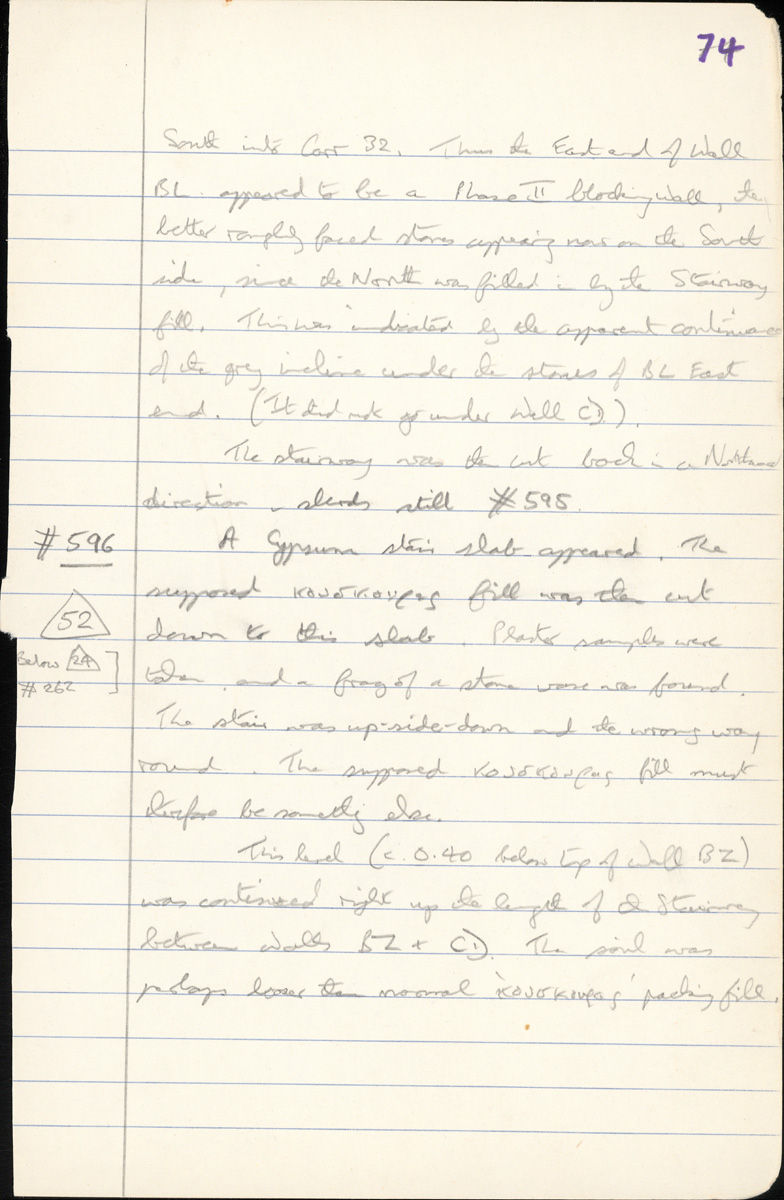 74
South into Corr 32. Thus the East end of Wall
BL appeared to be a Phase II blocking wall, the
better roughly faced stones appearing now on the South
side, since the North was filled in by the Stairway
fill. This was indicated by the apparent continuance
of the grey incline under the stones of BL East
end. (It did not go under Wall CD).
The stairway was then cut back in a Northward
direction - sherds still #595.
#596
A Gypsum stair slab appeared. The
supposed κουσκουρας fill was then cut
52
down to this slab. Plaster samples were
Below 24
taken, and a frag of a stone vase was found.
#262
The stair was up-side-down and the wrong way
round. The supposed κουσκουρας fill must
therefore be something else.
This level (c. 0.40 below top of Wall BZ)
was continued right up the length of the Stairway
between Walls BZ + CD. The soil was
perhaps looser than normal 'κουσκουρας' packing fill.